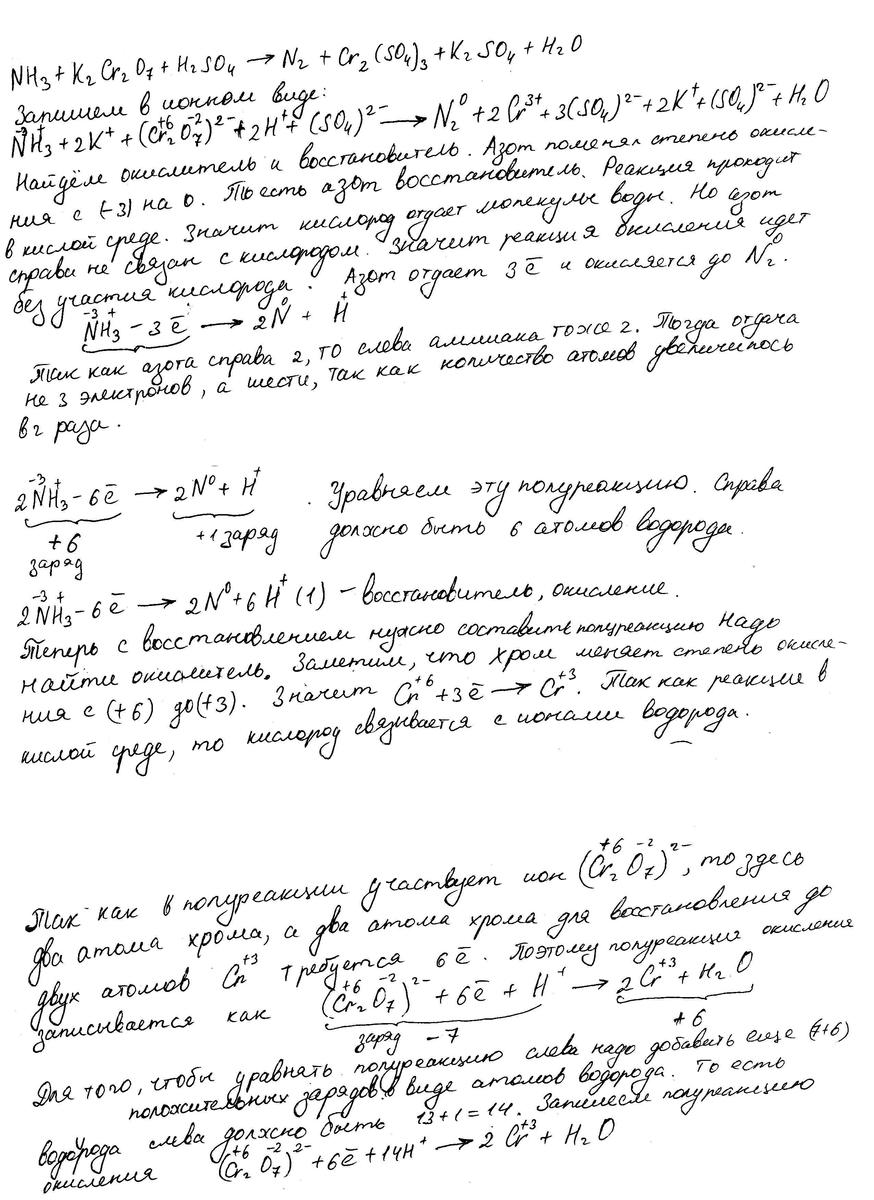 NH3 + K2Cr2O7 + H2SO4 → N2 + Cr2(SO4)3 + K2SO4 + H2O
Запишем в ионном виде:
N⁻³H⁺3 + 2K⁺ + (Cr⁺⁶2O⁻²7)²⁻ + 2H⁺ + (SO4)²⁻ → N⁰2 + 2Cr³⁺ + 3(SO4)²⁻ + 2K⁺ + (SO4)²⁻ + H2O
Найдём окислитель и восстановитель. Азот поменял степень окисле-
ния с (-3) на 0. То есть азот восстановитель. Реакция проходит
в кислой среде. Значит кислород отдает молекулы воды. Но азот
справа не связан с кислородом. Значит реакция окисления идет
без участия кислорода. Азот отдает 3ē и окисляется до N⁰2.
N⁻³H⁺3 - 3ē → 2N⁰ + H⁺
Так как азота справа 2, то слева аммиака тоже 2. Тогда отдача
не 3 электронов, а шести, так как количество атомов увеличилось
в 2 раза.
2N⁻³H⁺3 - 6ē → 2N⁰ + H⁺ . Уравняем эту полуреакцию. Справа
+6 +1 заряд должно быть 6 атомов водорода.
заряд
2N⁻³H⁺3 - 6ē → 2N⁰ + 6H⁺ (1) - восстановитель, окисление.
Теперь с восстановлением нужно составить полуреакцию Надо
найти окислитель. Заметим, что хром меняет степень окисле-
ния с (+6) до (+3). Значит Cr⁺⁶ + 3ē → Cr⁺³. Так как реакция в
кислой среде, то кислород связывается с ионами водорода.
Так как в полуреакции участвует ион (Cr⁺⁶2O⁻²7)²⁻, то здесь
два атома хрома, а два атома хрома для восстановления до
двух атомов Cr⁺³ требуется 6ē. Поэтому полуреакция окисления
записывается как (Cr⁺⁶2O⁻²7)²⁻ + 6ē + H⁺ → 2Cr⁺³ + H2O
заряд -7 +6
Для того, чтобы уравнять полуреакцию слева надо добавить еще (7+6)
положительных зарядов в виде атомов водорода. То есть
водорода слева должно быть 13+1=14. Запишем полуреакцию
окисления (Cr⁺⁶2O⁻²7)²⁻ + 6ē + 14H⁺ → 2Cr⁺³ + H2O